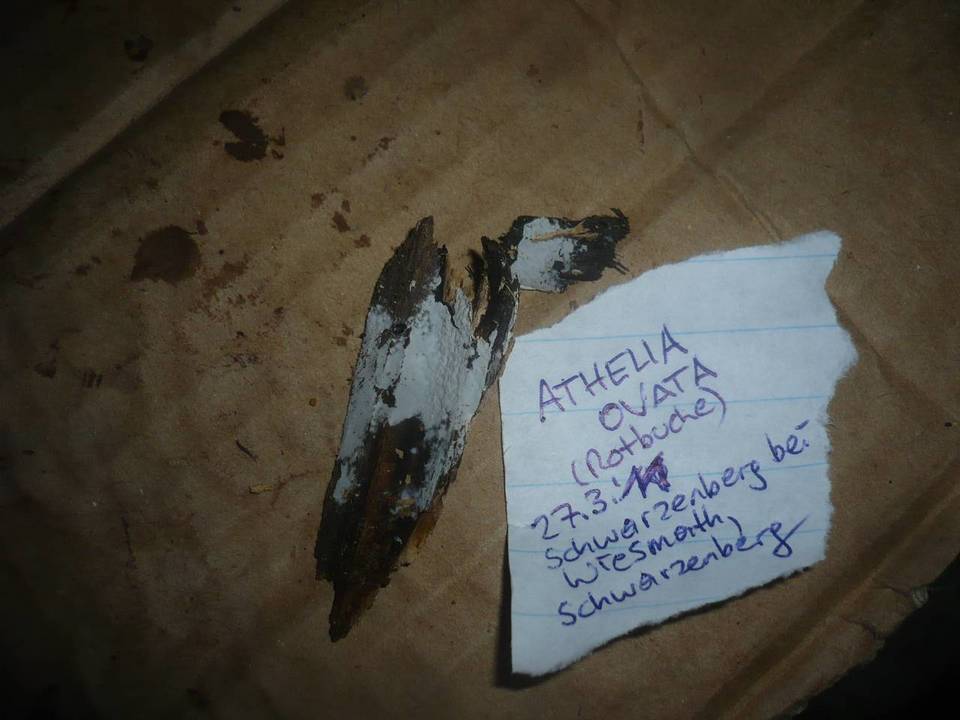 ATHELIA
OVATA
(Rotbuche)
27.3.
Schwarzenberg bei
Wiesmath,
Schwarzenberg